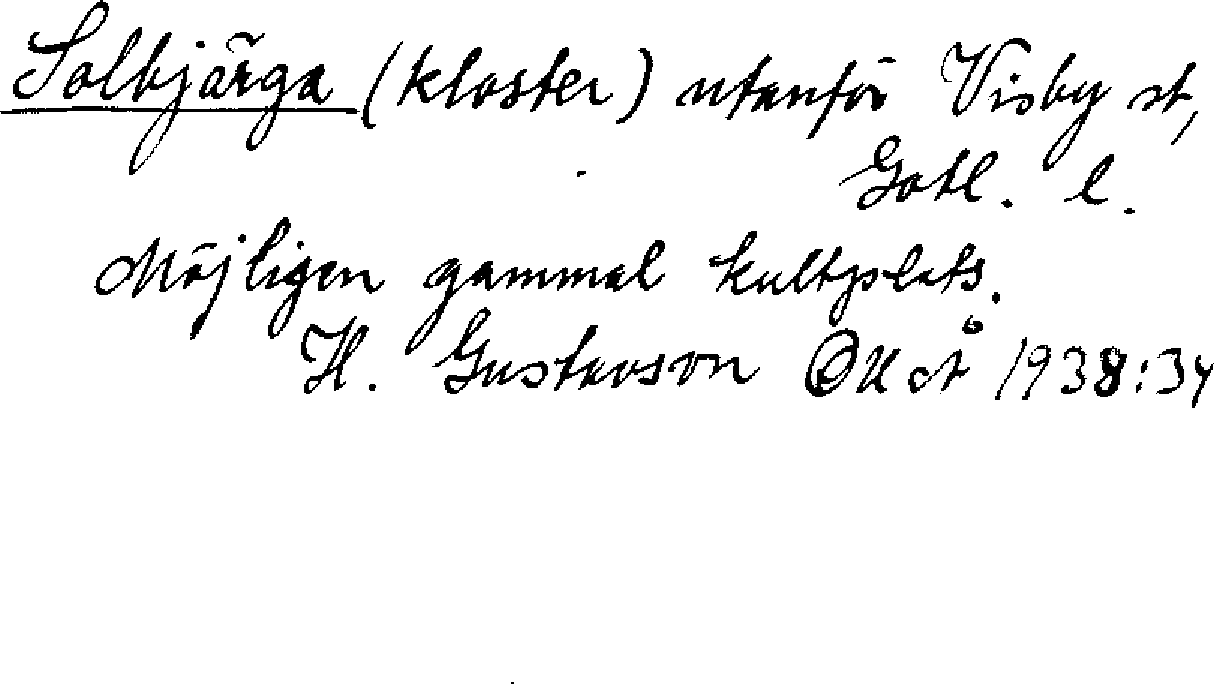 Solbjärga (kloster) utanför Visby st,
Gotl. l.
Möjligen gammal kultplats.
H. Gustavson 1938:34